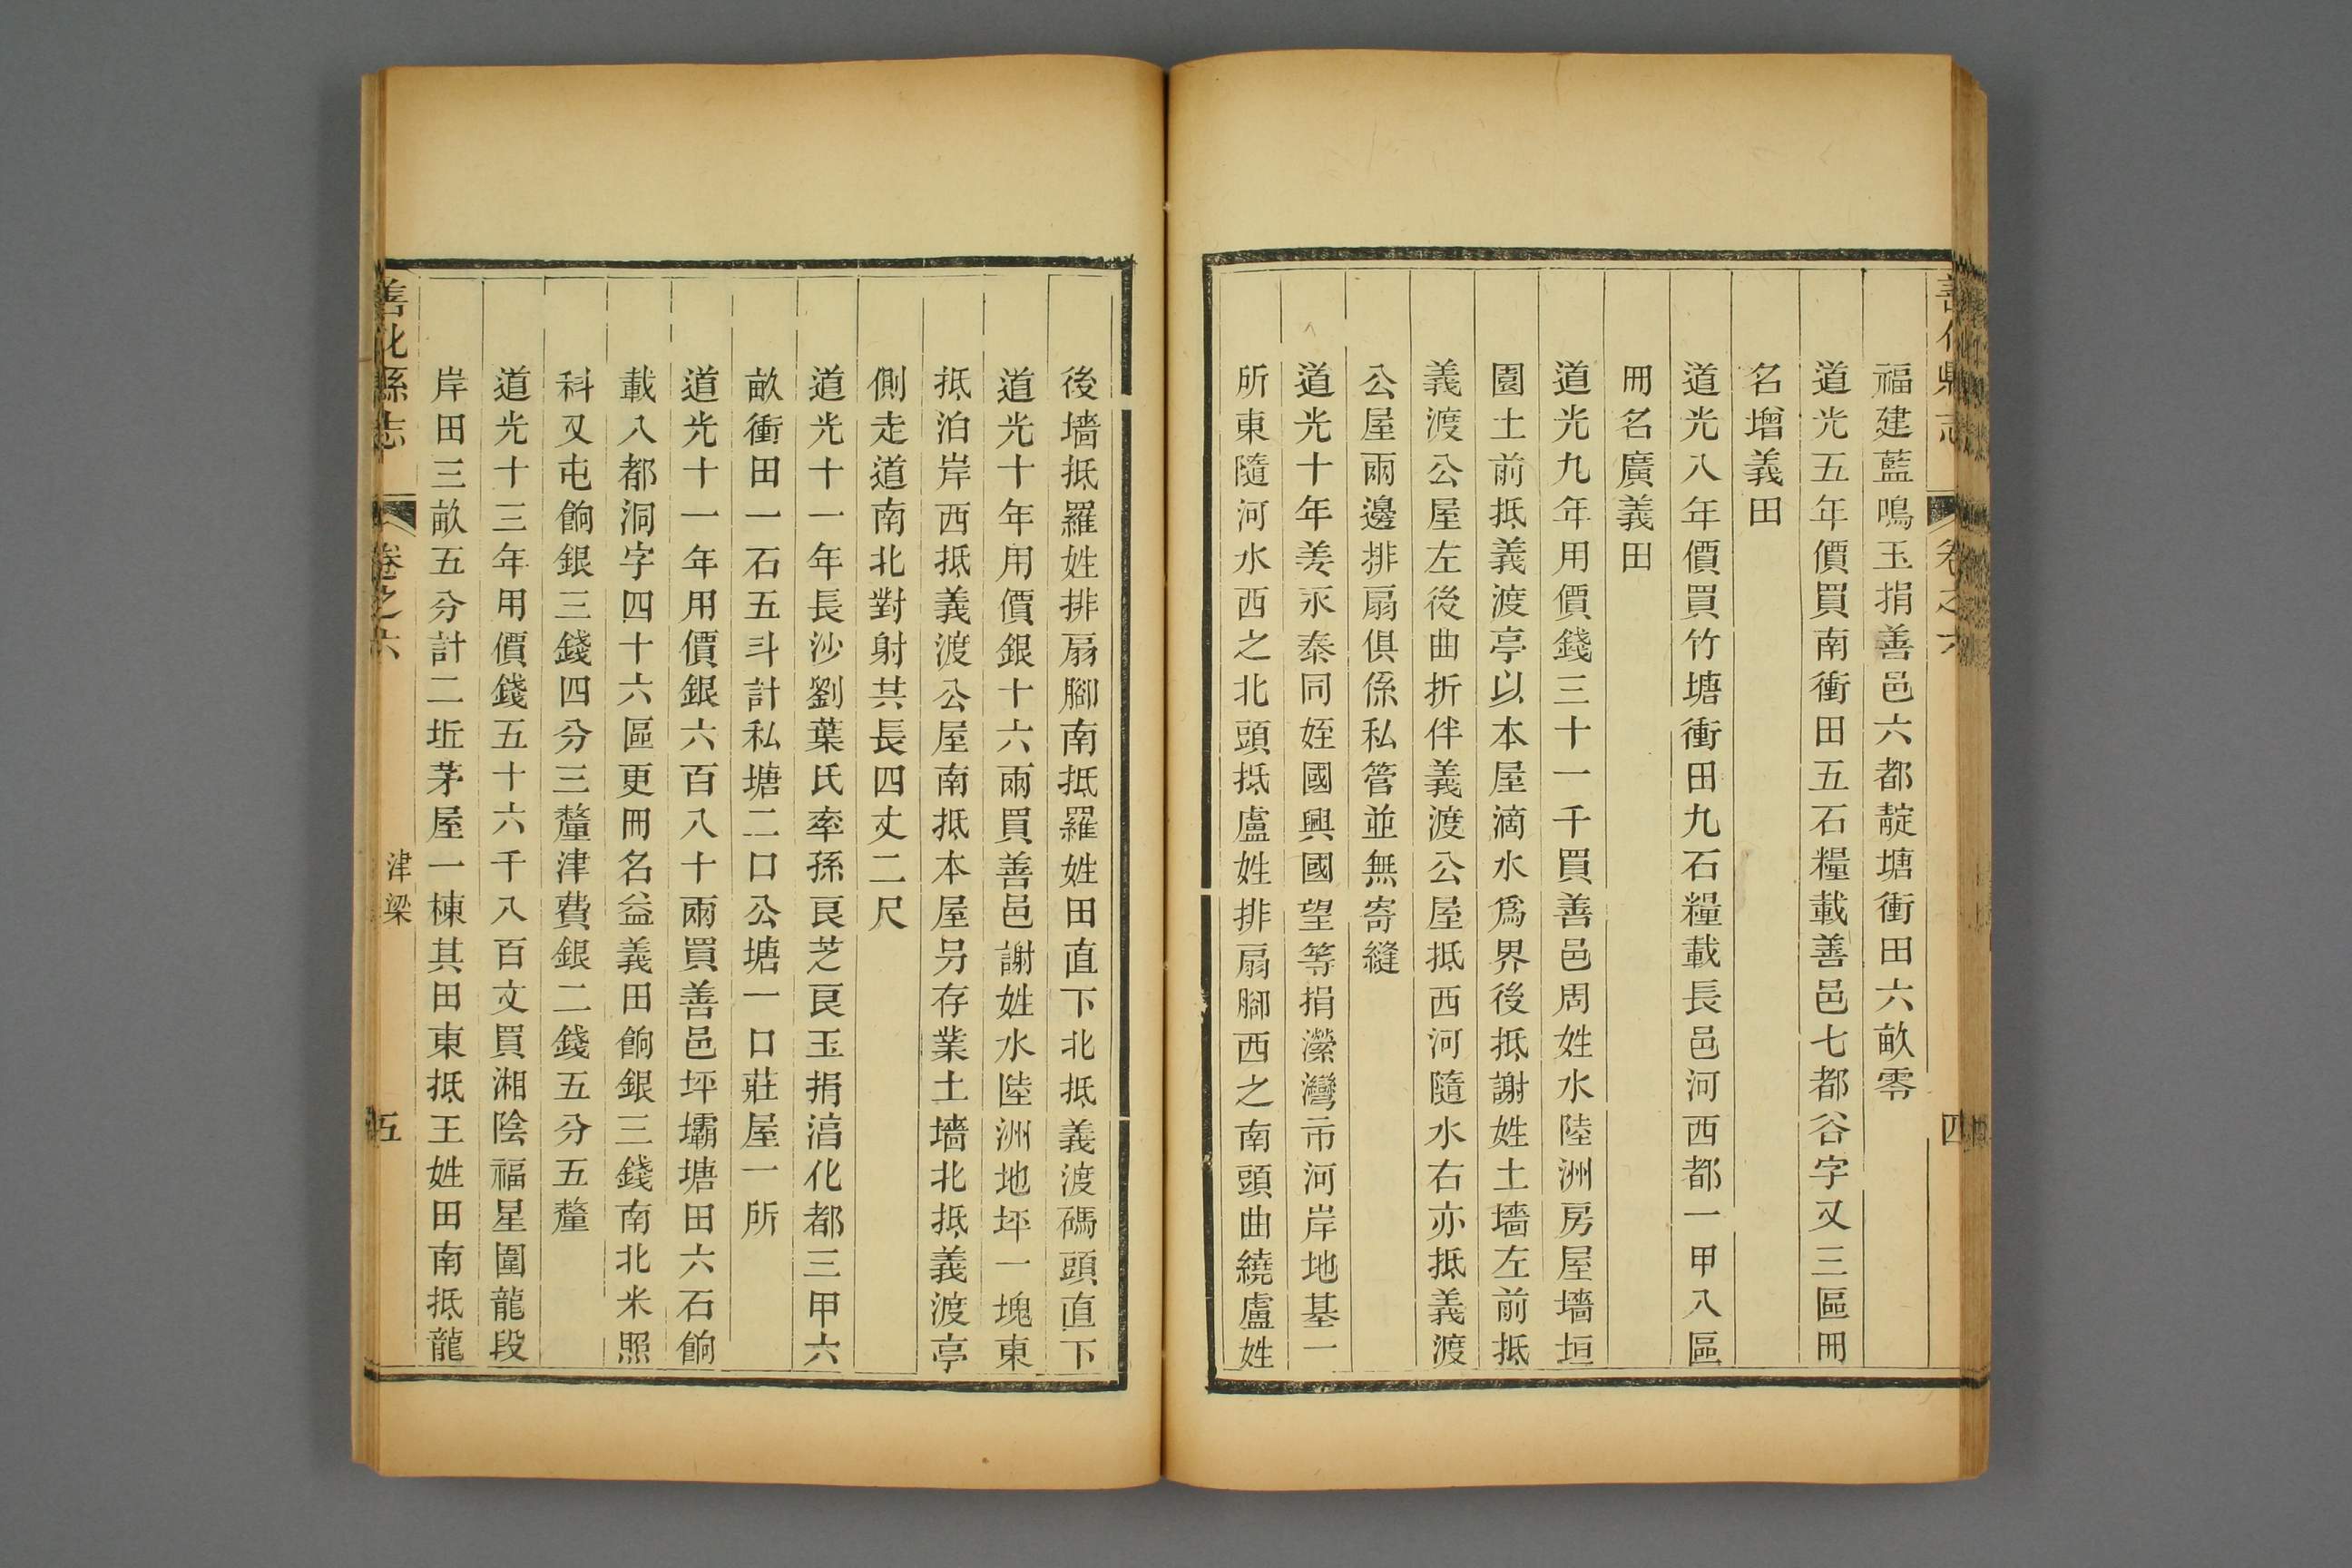 善化縣志 卷之六 四
福建藍鳴玉捐善邑六都靛塘衝田六畝零
道光五年價買南衝田五石糧載善邑七都谷字又三區冊
名增義田
道光八年價買竹塘衝田九石糧載長邑河西都一甲八區
冊名廣義田
道光九年用價錢三十一千買善邑周姓水陸洲房屋墻垣
園土前抵義渡亭以本屋滴水爲界後抵謝姓土墻左前抵
義渡公屋左後曲折伴義渡公屋抵西河隨水右亦抵義渡
公屋兩邊排扇俱係私管並無寄縫
道光十年姜永泰同姪國興國望等捐濚灣市河岸地基一
所東隨河水西之北頭抵盧姓排扇腳西之南頭曲繞盧姓
後墻抵羅姓排扇腳南抵羅姓田直下北抵義渡碼頭直下
道光十年用價銀十六兩買善邑謝姓水陸洲地坪一塊東
抵泊岸西抵義渡公屋南抵本屋另存業土墻北抵義渡亭
側走道南北對射共長四丈二尺
道光十一年長沙劉葉氏率孫良芝良玉捐淯化都三甲六
畝衝田一石五斗計私塘二口公塘一口莊屋一所
道光十一年用價銀六百八十兩買善邑坪壩塘田六石餉
載八都洞字四十六區更冊名益義田餉銀三錢南北米照
科又屯餉銀三錢四分三釐津費銀二錢五分五釐
道光十三年用價錢五十六千八百文買湘陰福星圍龍段
岸田三畝五分計二坵茅屋一棟其田東抵王姓田南抵龍
善化縣志 卷之六 津梁 五